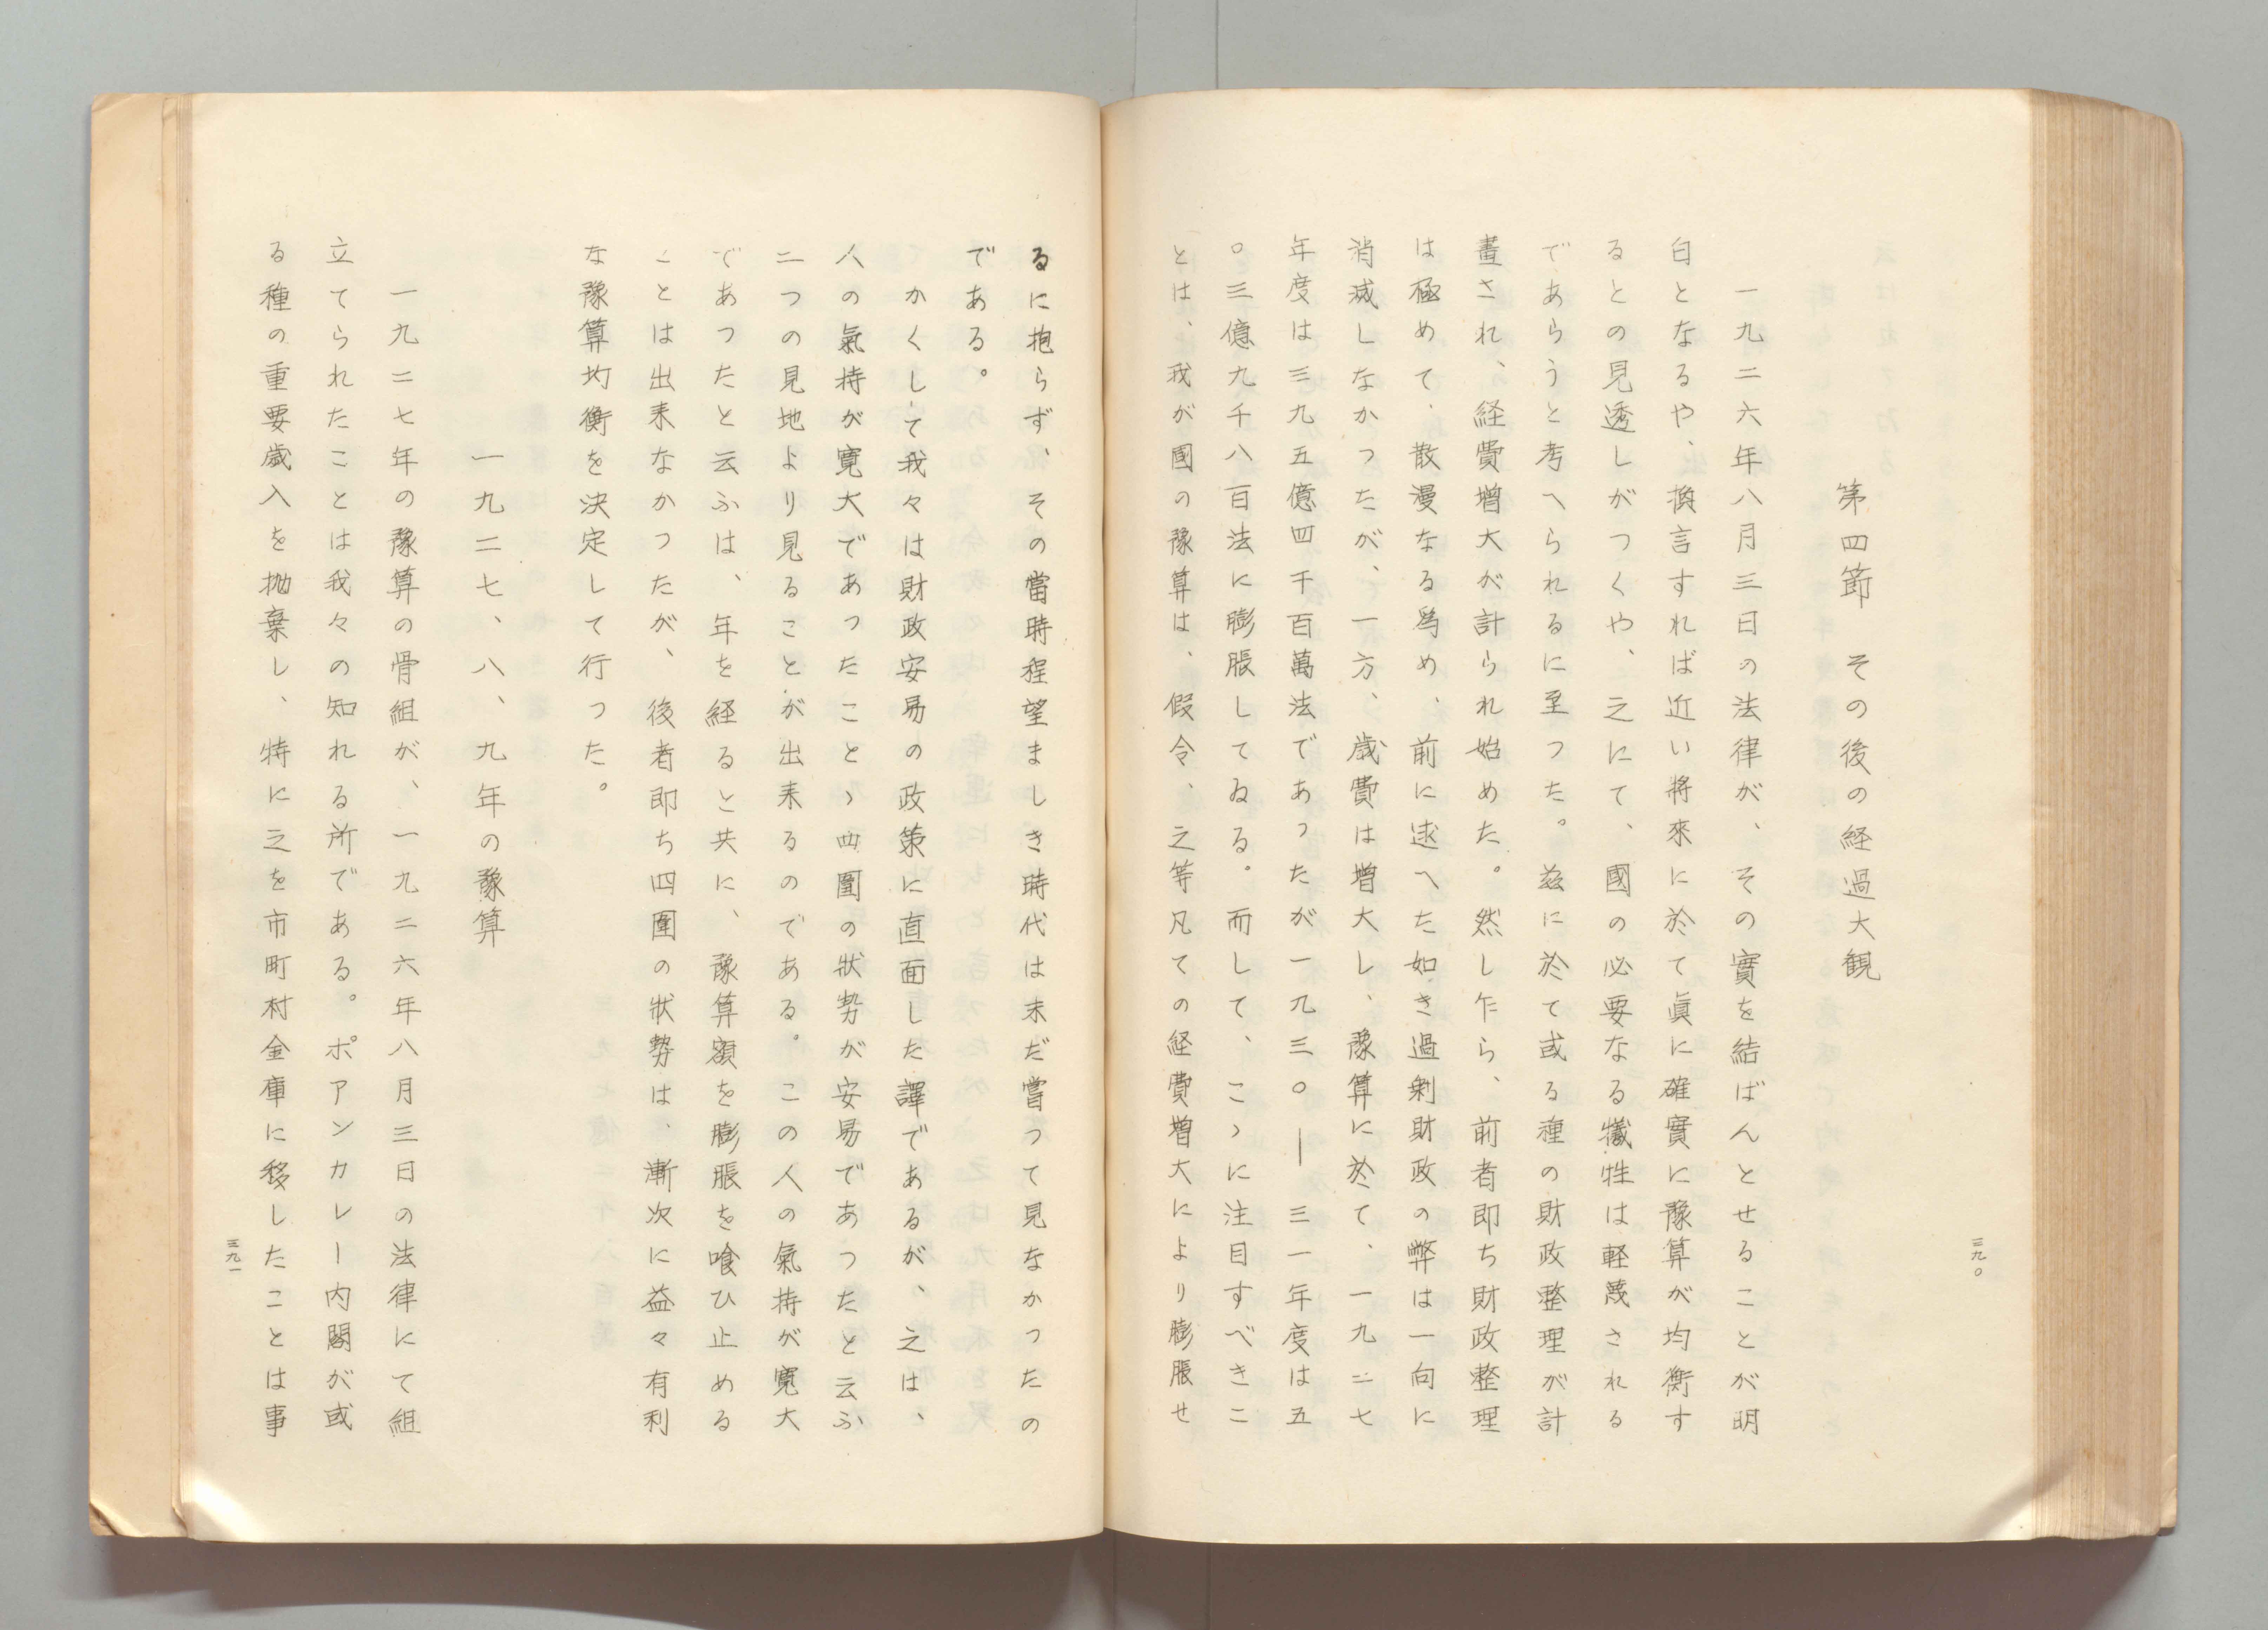 三九〇
第四節　その後の経過大観
一九二六年八月三日の法律が、その實を結ばんとせることが明
白となるや、換言すれば近い將來に於て眞に確實に豫算が均衡す
るとの見透しがつくや、之にて、國の必要なる犠牲は軽蔑される
であらうと考へられるに至つた。茲に於て或る種の財政整理が計
畫され、経費増大が計られ始めた。然し乍ら、前者即ち財政整理
は極めて、散漫なる爲め、前に逑へた如き過剰財政の弊は一向に
消滅しなかつたが、一方、歳費は増大し、豫算に於て、一九二七
年度は三九五億四千百萬法であつたが一九三〇―三一年度は五
〇三億九千八百法に膨脹してゐる。而して、こゝに注目すべきこ
とは、我が國の豫算は、假令、之等凡ての経費増大により膨脹せ
るに抱らず、その當時程望ましき時代は未だ嘗つて見なかつたの
である。
かくして我々は財政安易の政策に直面した譯であるが、之は、
人の氣持が寛大であつたことゝ四圍の狀勢が安易であつたと云ふ
二つの見地より見ることが出来るのである。この人の氣持が寛大
であつたと云ふは、年を経ると共に、豫算額を膨脹を喰ひ止める
ことは出来なかつたが、後者即ち四圍の狀勢は、漸次に益々有利
な豫算均衡を決定して行つた。
一九二七、八、九年の豫算
一九二七年の豫算の骨組が、一九二六年八月三日の法律にて組
立てられたことは我々の知れる所である。ポアンカレー内閣が或
る種の重要歳入を抛棄し、特に之を市町村金庫に移したことは事
三九一